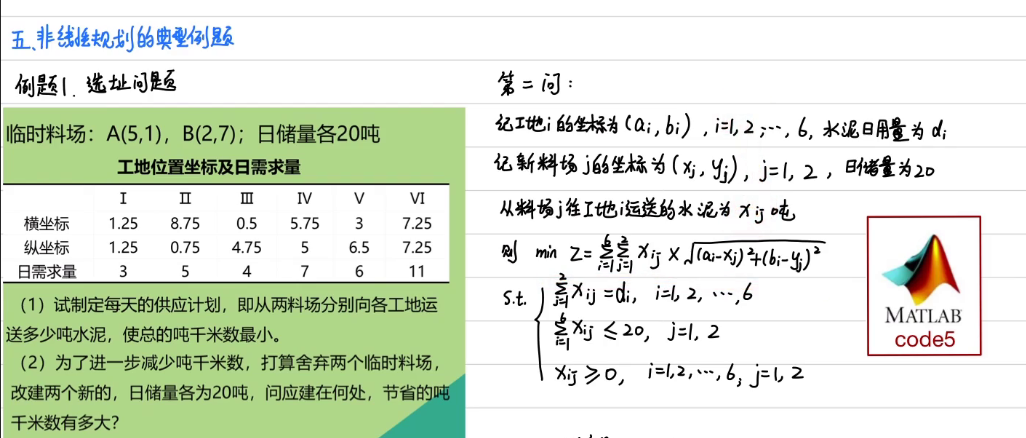 五、非线性规划的典型例题
例题1. 选址问题
临时料场：A(5,1)，B(2,7)；日储量各20吨
工地位置坐标及日需求量
I II III IV V VI
横坐标 1.25 8.75 0.5 5.75 3 7.25
纵坐标 1.25 0.75 4.75 5 6.5 7.25
日需求量 3 5 4 7 6 11
（1）试制定每天的供应计划，即从两料场分别向各工地运
送多少吨水泥，使总的吨千米数最小。
（2）为了进一步减少吨千米数，打算舍弃两个临时料场，
改建两个新的，日储量各为20吨，问应建在何处，节省的吨
千米数有多大？
第二问：
记工地i的坐标为(ai, bi)，i=1,2,…,6, 水泥日用量为di
记新料场j的坐标为(xj, yj), j=1, 2, 日储量为20
从料场j往工地i运送的水泥为xij吨
则 min Z=∑_{i=1}^{6}∑_{j=1}^{2} xij × √((ai-xj)²+(bi-yj)²)
s.t. { ∑_{j=1}^{2} xij=di, i=1, 2, …, 6
∑_{i=1}^{6} xij ≤ 20, j=1, 2
xij ≥ 0, i=1,2,…,6, j=1, 2
MATLAB
code5